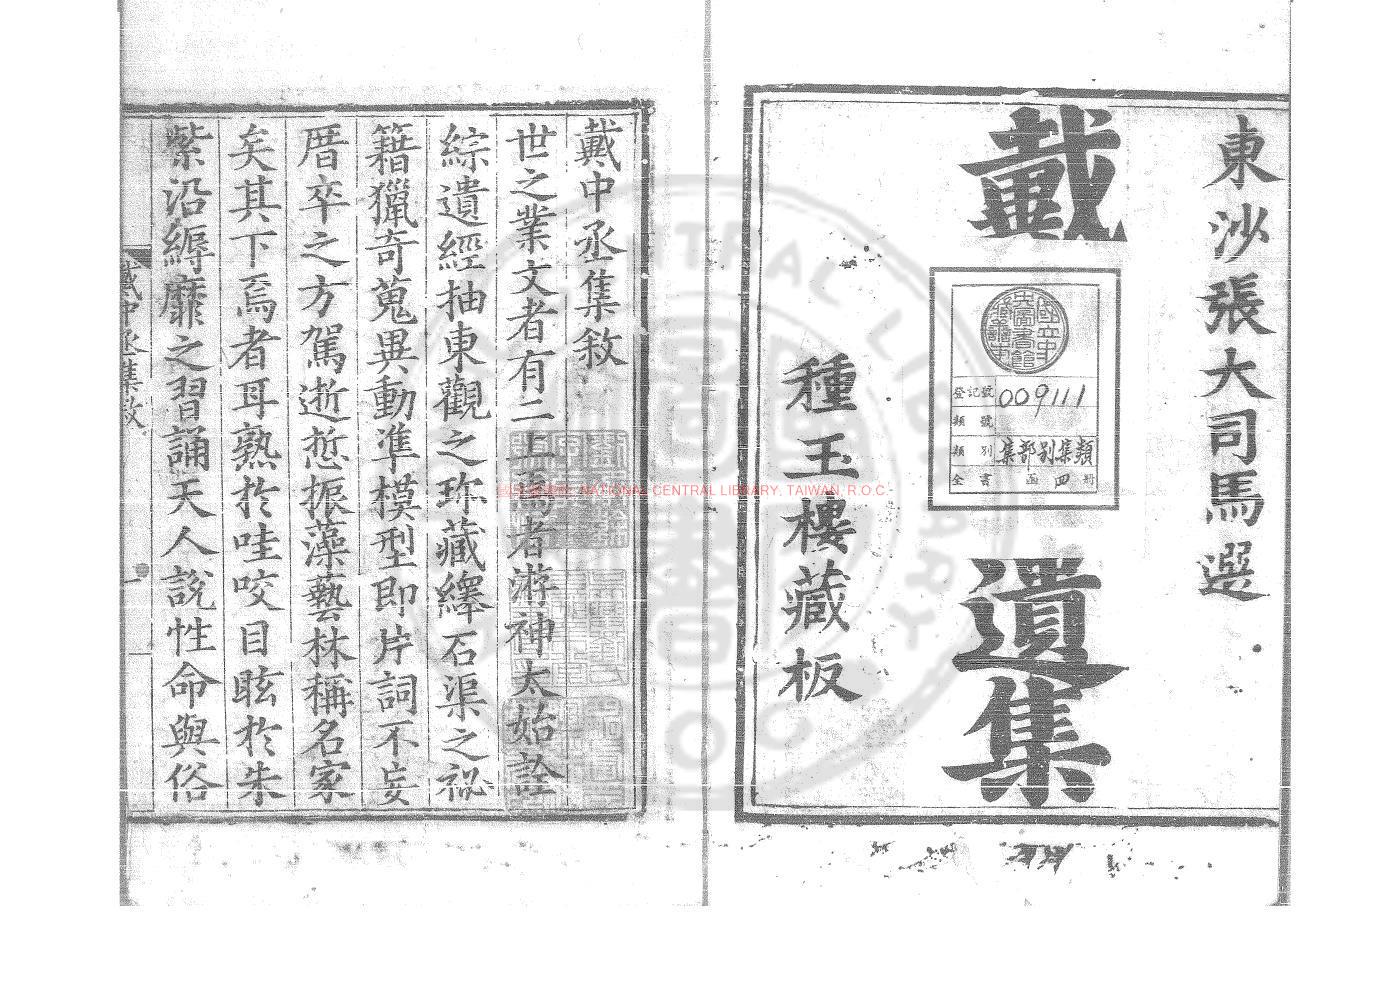 東沙張大司馬選
戴遺集
國立中央圖書館
登記號 009111
類號
類別 集部別集類
全書 函 四 冊
種玉樓藏板
戴中丞集敘
世之業文者有二上焉者游神太始詮
綜遺經抽東觀之珎藏繹石渠之祕
籍獵奇蒐異動準模型即片詞不妄
厝卒之方駕逝悊振藻藝林稱名家
矣其下焉者耳熟於哇咬目眩於朱
紫沿縟靡之習誦天人說性命與俗
戴中丞集敘
一
NATIONAL CENTRAL LIBRARY, TAIWAN, R.O.C.